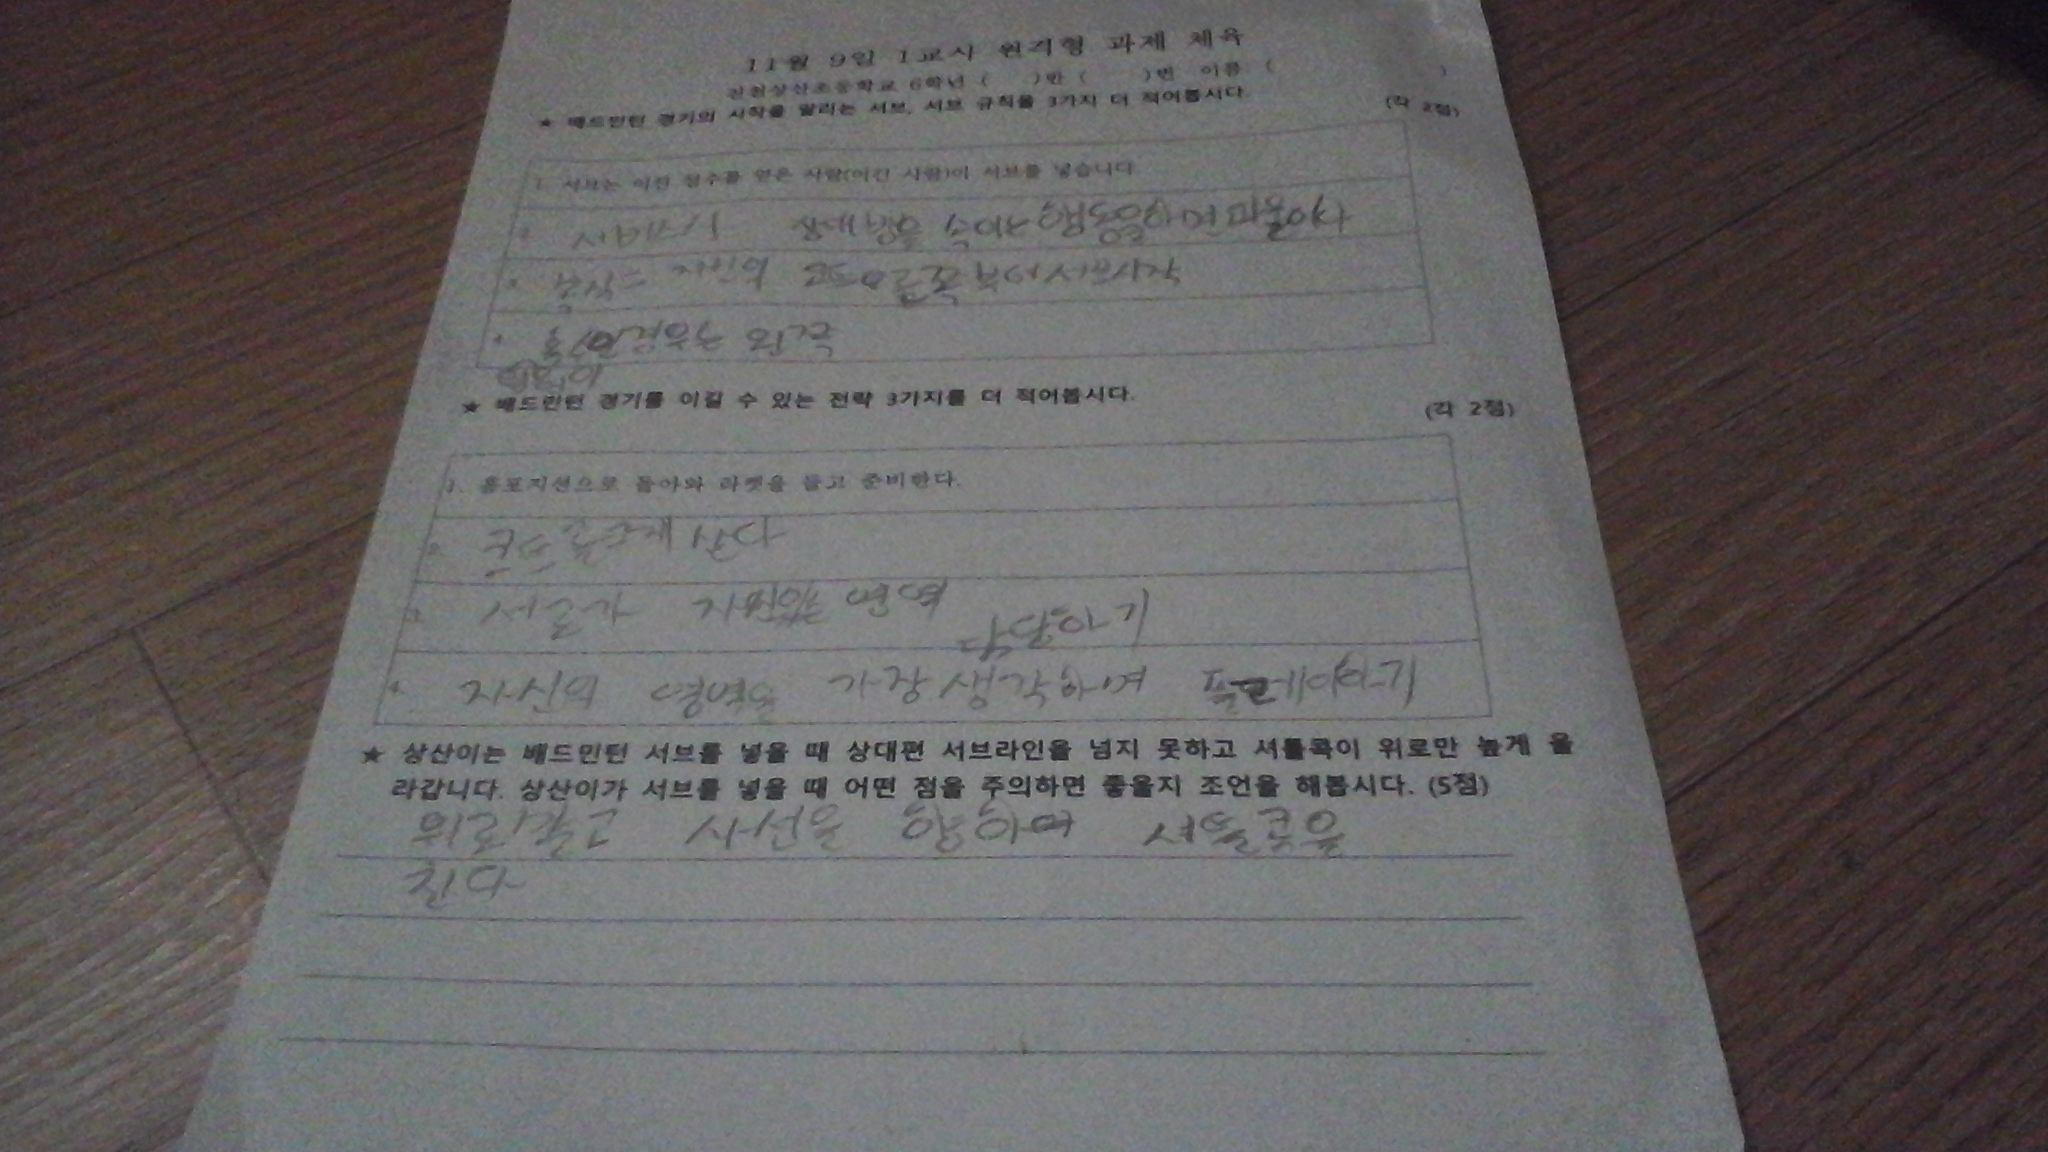 11월 9일 1교시 원격형 과제 체육
진천상산초등학교 6학년 ( )반 ( )번 이름: ( )
★ 배드민턴 경기의 시작을 알리는 서브, 서브 규칙을 3가지 더 적어봅시다. (각 2점)
1. 서브는 이전 점수를 얻은 사람(이긴 사람)이 서브를 넣습니다.
2. 서브시 상대방을 속이는 행동을하면 파울이다
3. 복식는 오른쪽부터 서브시작
4. 홀수인경우는 왼쪽
★ 배드민턴 경기를 이길 수 있는 전략 3가지를 더 적어봅시다. (각 2점)
1. 홈포지션으로 돌아와 라켓을 들고 준비한다.
2.
3. 서로가 영역 담당하기
4. 자신의 영역을 가장 생각하며 플레이하기
★ 상산이는 배드민턴 서브를 넣을 때 상대편 서브라인을 넘지 못하고 셔틀콕이 위로만 높게 올
라갑니다. 상산이가 서브를 넣을 때 어떤 점을 주의하면 좋을지 조언을 해봅시다. (5점)
뒤로 사선을 향하여 셔틀콕을
친다